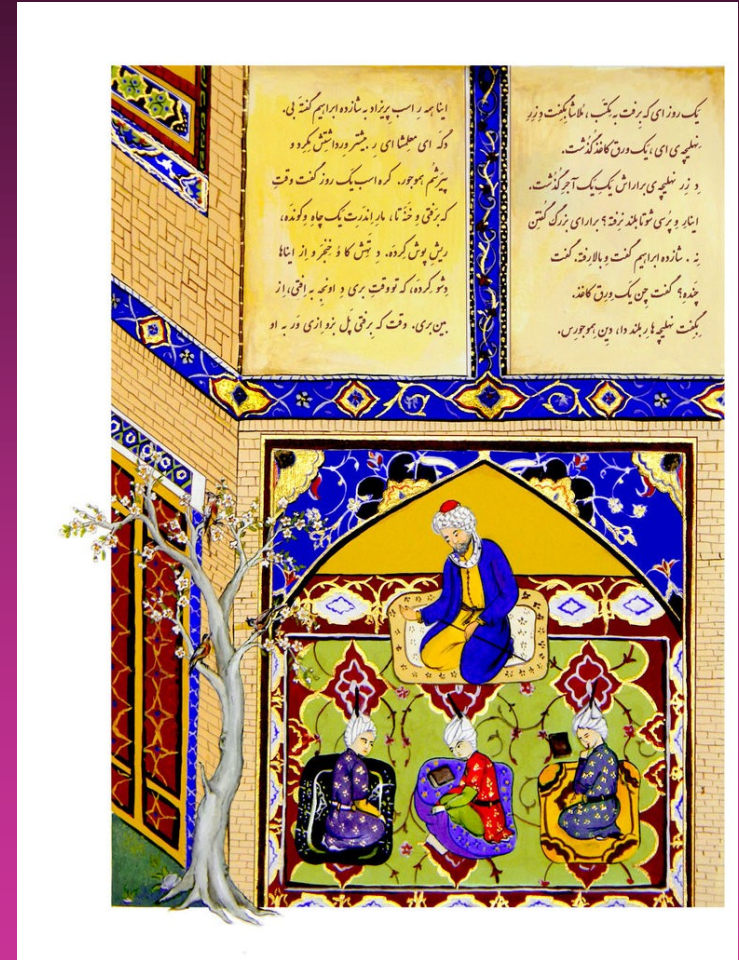 یک روز ای که بِرفت به مکتَب، مُلاشا بِگفت دِ زِرِ
نِهلیچه ی ای، یک ورق کاغذ گُذشت.
دِ زِرِ نهلیچه ی براراش یک یک آجر گُذشت.
اینارِ وِ پُرسی شوتا بلند نِرفته؟ برارای بزرگ گُفتِن
نِه. شازده ابراهیم گفت وِ بالا رِفته. گفت
چنده؟ گفت چِن یک وِرق کاغذ.
بِگفت نهلیچه ها رِ بلند دا، دین هموجورس.
اینا همه رِ اسب پریزاد به شازده ابراهیم گفتَه بی.
دگه ای معلِشا ای رِ بیشتر وِرداشتش مِکِرد و
پیرَشم هموجور. کره اسب یَگ روز گفت وقتِ
که برَفتی وِ خَنَه تا، مار اِندَرِت یک چاه وِ کُونَده،
ریش پوش کِرده. دِ تَهِش کا وُ خنجر و از اینا
دِشو کِرده، که تو وقتِ بری دِ اونجه به اُفتی، اِز
بین بری. وقت که بِرفتی پَل بزِ و ازی وَر به او